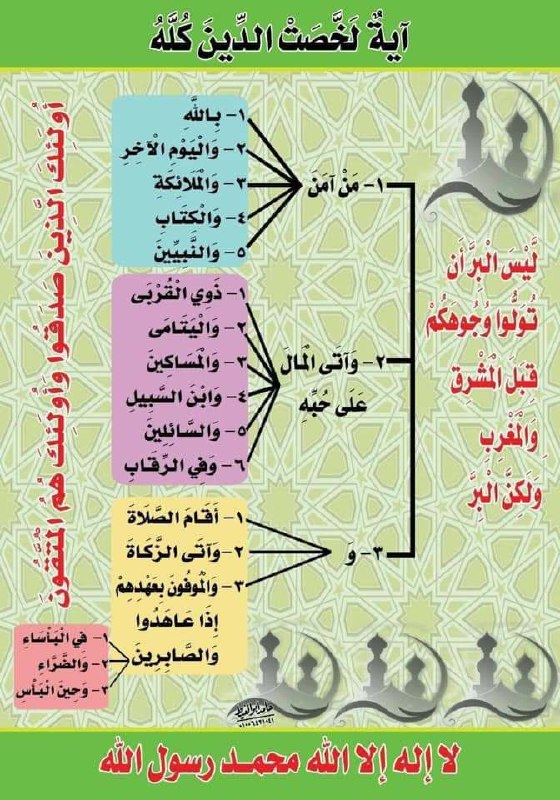 آيةٌ لَخَّصَتْ الدِّينَ كُلَّهُ
لَّيْسَ الْبِرَّ أَن
تُوَلُّوا وُجُوهَكُمْ
قِبَلَ الْمَشْرِقِ
وَالْمَغْرِبِ
وَلَكِنَّ الْبِرَّ
١- مَنْ آمَنَ
١- بِاللَّهِ
٢- وَالْيَوْمِ الْآخِرِ
٣- وَالْمَلَائِكَةِ
٤- وَالْكِتَابِ
٥- وَالنَّبِيِّينَ
٢- وَآتَى الْمَالَ
عَلَى حُبِّهِ
١- ذَوِي الْقُرْبَى
٢- وَالْيَتَامَى
٣- وَالْمَسَاكِينَ
٤- وَابْنَ السَّبِيلِ
٥- وَالسَّائِلِينَ
٦- وَفِي الرِّقَابِ
٣- وَ
١- أَقَامَ الصَّلَاةَ
٢- وَآتَى الزَّكَاةَ
٣- وَالْمُوفُونَ بِعَهْدِهِمْ
إِذَا عَاهَدُوا
وَالصَّابِرِينَ
١- فِي الْبَأْسَاءِ
٢- وَالضَّرَّاءِ
٣- وَحِينَ الْبَأْسِ
أُولَئِكَ الَّذِينَ صَدَقُوا وَأُولَئِكَ هُمُ الْمُتَّقُونَ
لا إله إلا الله محمـد رسول الله